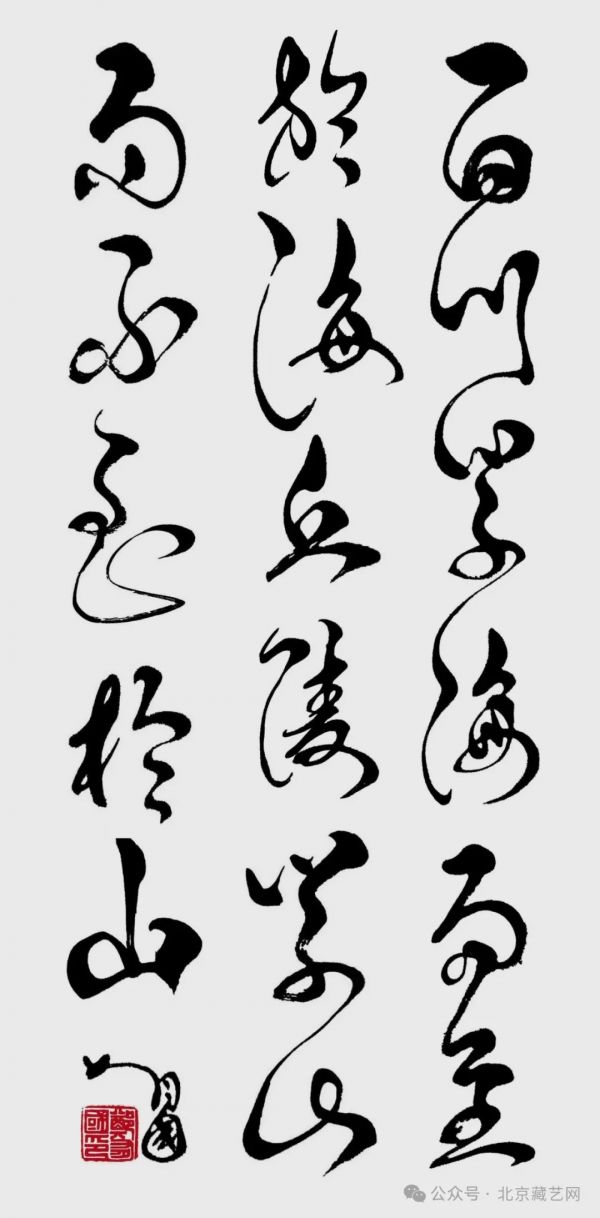 百川學海而至
於海丘陵學山
而不至於山
公众号 · 北京藏艺网